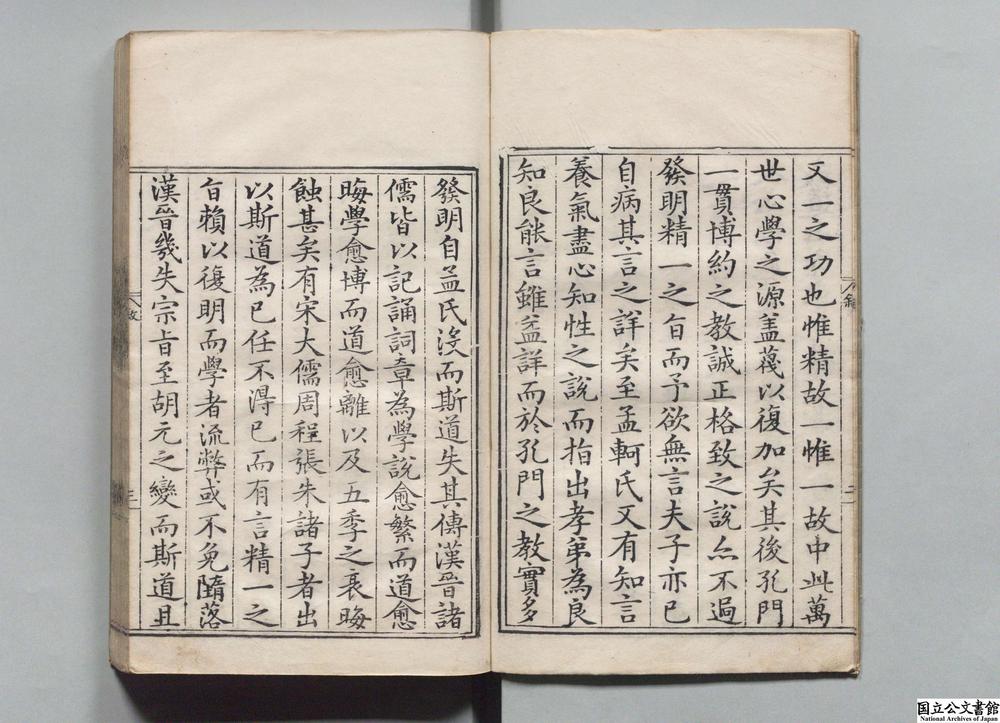 又一之功也惟精故一惟一故中此萬
世心學之源盖蔑以復加矣其後孔門
一貫博約之教誠正格致之說亦不過
發明精一之旨而予欲無言夫子亦已
自病其言之詳矣至孟軻氏又有知言
養氣盡心知性之說而指出孝弟為良
知良能言雖益詳而於孔門之教實多
發明自孟氏沒而斯道失其傳漢晉諸
儒皆以記誦詞章為學說愈繁而道愈
晦學愈博而道愈離以及五季之衰晦
蝕甚矣有宋大儒周程張朱諸子者出
以斯道為己任不得已而有言精一之
旨賴以復明而學者流弊或不免隨落
漢晉幾失宗旨至胡元之變而斯道且
国立公文書館
National Archives of Japan